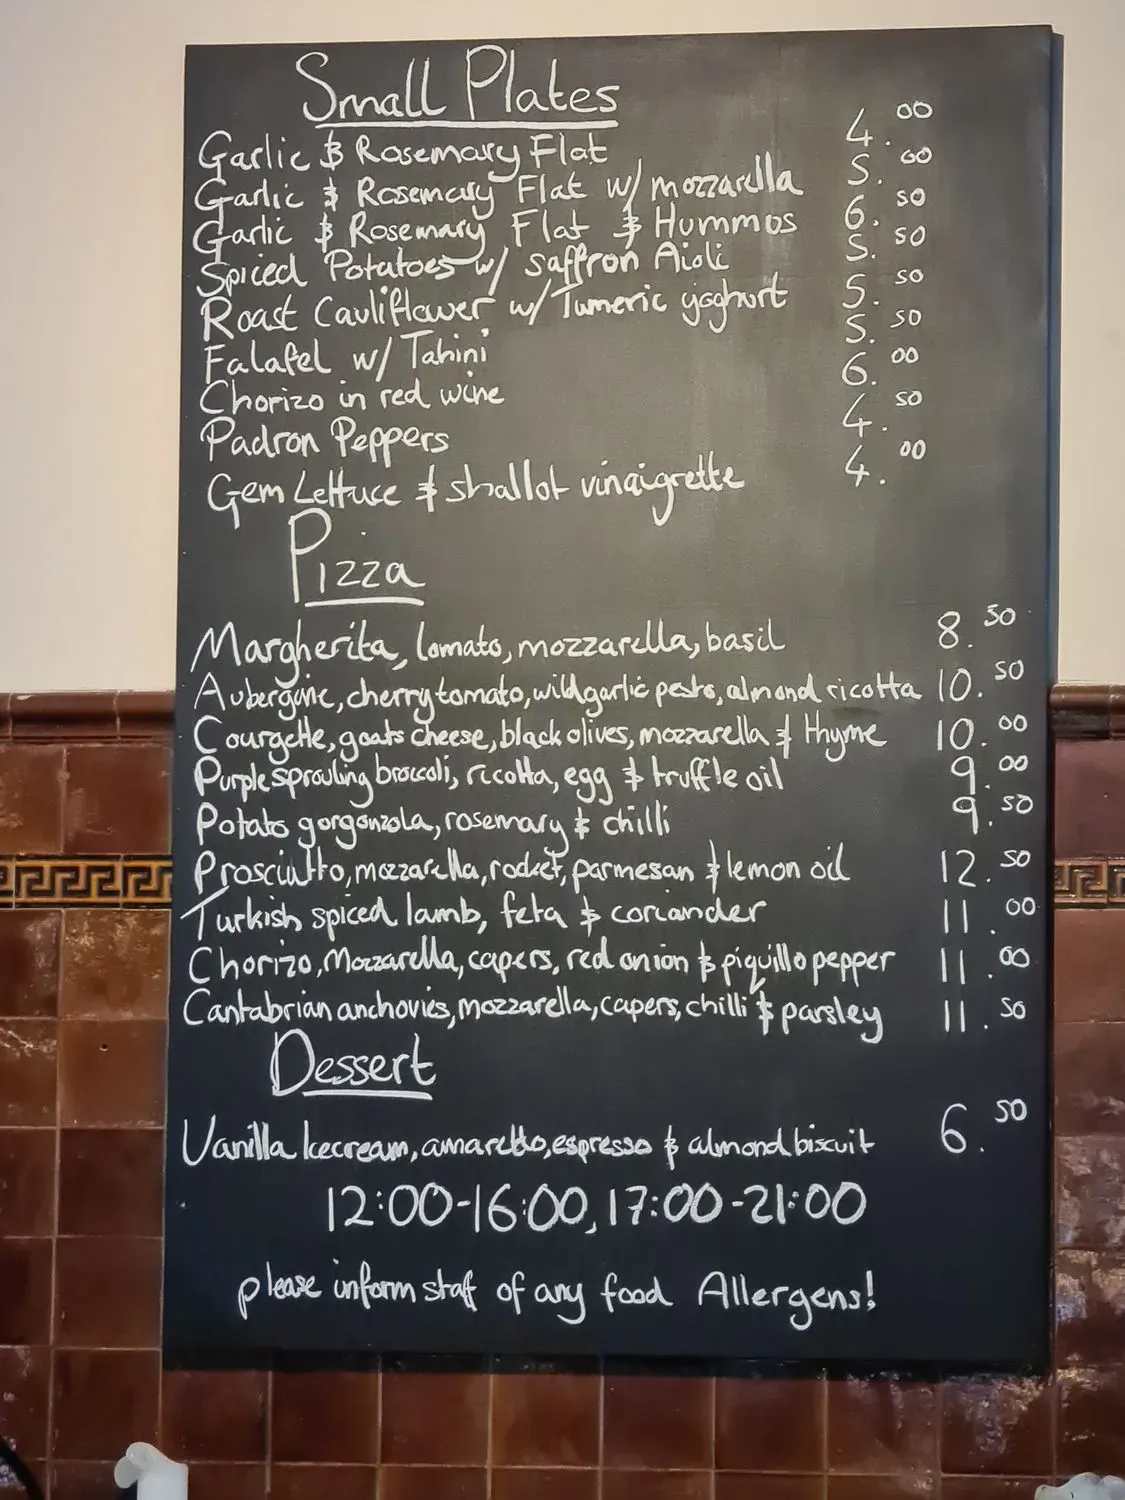 Small Plates
Garlic & Rosemary Flat 4.00
Garlic & Rosemary Flat w/ mozzarella 5.00
Garlic & Rosemary Flat & Hummos 6.50
Spiced Potatoes w/ saffron Aioli 5.50
Roast Cauliflower w/ Tumeric yoghurt 5.50
Falafel w/ Tahini 5.50
Chorizo in red wine 6.00
Padron Peppers 4.50
Gem Lettuce & shallot vinaigrette 4.00
Pizza
Margherita, tomato, mozzarella, basil 8.50
Aubergine, cherry tomato, wild garlic pesto, almond ricotta 10.50
Courgette, goats cheese, black olives, mozzarella & thyme 10.00
Purple sprouting broccoli, ricotta, egg & truffle oil 9.00
Potato gorgonzola, rosemary & chilli 9.50
Prosciutto, mozzarella, rocket, parmesan & lemon oil 12.50
Turkish spiced lamb, feta & coriander 11.00
Chorizo, Mozzarella, capers, red onion & piquillo pepper 11.00
Cantabrian anchovies, mozzarella, capers, chilli & parsley 11.50
Dessert
Vanilla Icecream, amaretto, espresso & almond biscuit 6.50
12:00-16:00, 17:00-21:00
please inform staff of any food Allergens!